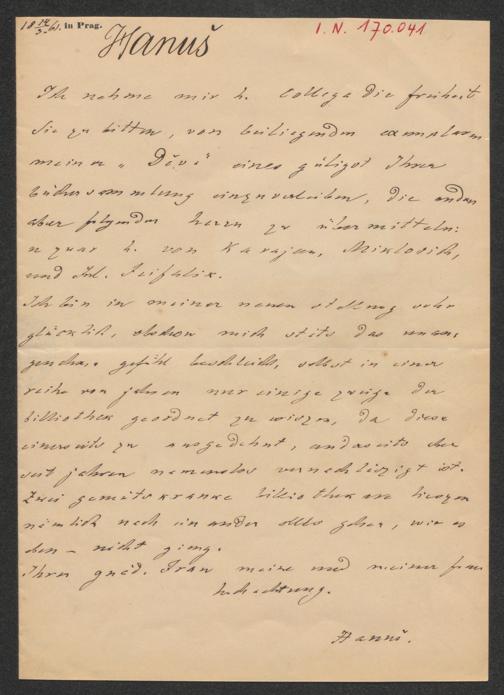 18 14/3. 61. in Prag.
I. N. 170.041
Hanuš
Ich nehme mir h. Collega die freiheit
Sie zu bitten, von beiliegenden exemplaren
meiner „Děva“ eines gütigst Ihrer
büchersammlung einzuverleiben, die andern
aber folgenden herrn zu übermitteln:
u zwar h. von Karajan, Miklosich,
und Jul. Feifalik.
Ich bin in meiner neuen stellung sehr
glücklich, obschon mich stets das unan-
genehme gefühl beschleicht, selbst in einer
reihe von jahren nur einige zweige der
bibliothek geordnet zu wissen, da diese
einerseits zu ausgedehnt, anderseits aber
seit jahren namenlos vernachläßigt ist.
Zwei gemüts kranke bibliothekare liessen
nämlich nach einander alles gehen, wie es
eben – nicht gieng.
Ihrer gnäd. Frau meine und meiner frau
hochachtung.
Hanuš.